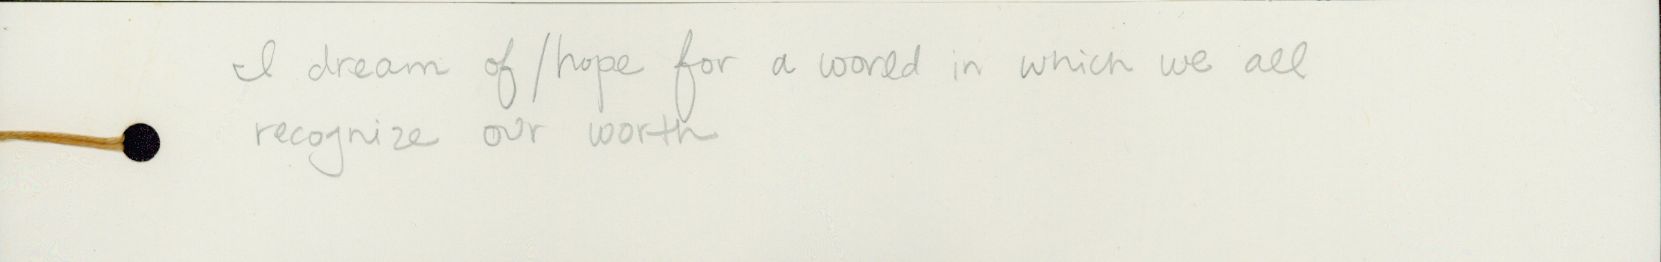 I dream of/hope for a world in which we all
recognize our worth